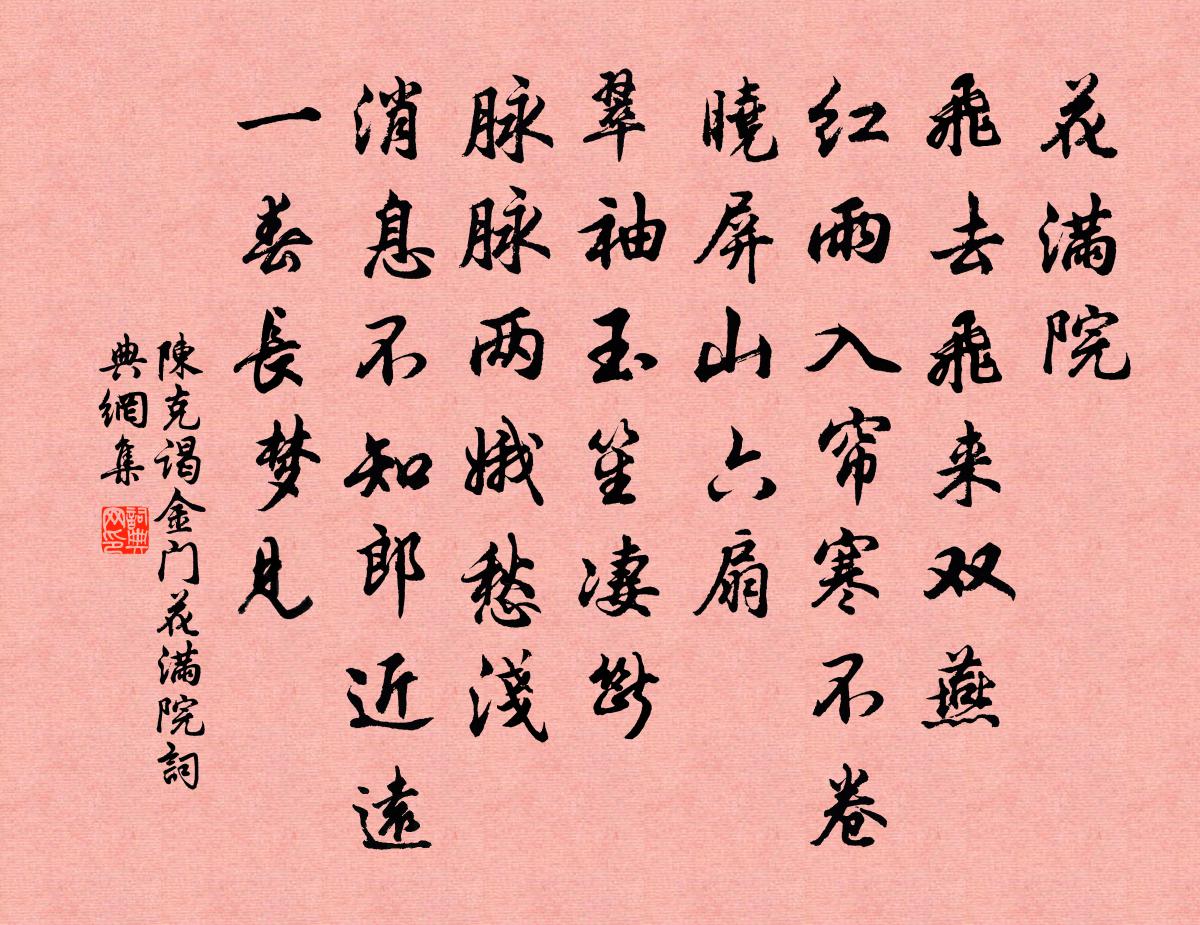 花满院
飛去飛来双燕
红雨入帘寒不卷
曉屏山六扇
翠袖玉笙凄斷
脉脉两娥愁淺
消息不知郎近遠
一春長梦見
陳克谒金门花满院詞
典網集
詞典网印